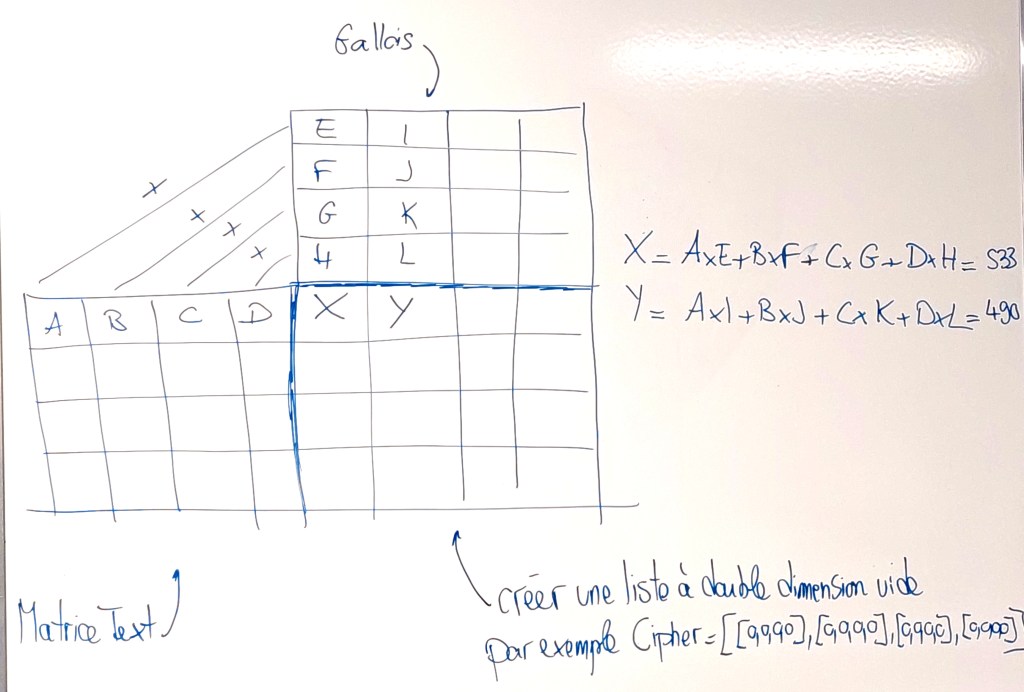 Gallois
E I
F J
G K
H L
x
x
x
x
A B C D X Y
X = AxE+BxF+CxG+DxH= 533
Y = AxI+BxJ+CxK+DxL=490
Matrice Text
créer une liste à double dimension vide
par exemple Cipher=[[0,0,0,0],[0,0,0,0],[0,0,0,0],[0,0,0,0]]